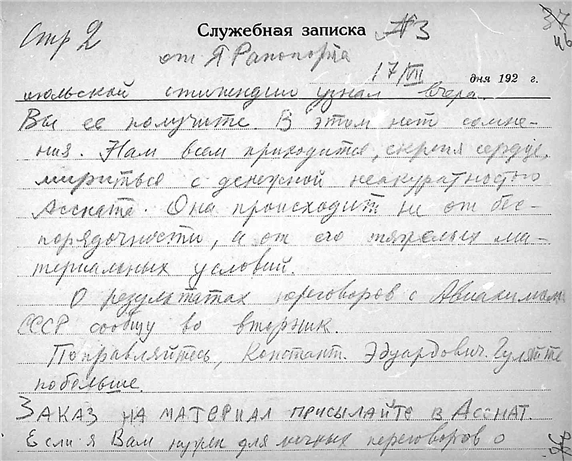 Стр 2 Служебная записка №3 37
от Я Рапопорта 46
17/VII дня 192 г.
июльской стипендии узнал вчера.
Вы ее получите. В этом нет сомне-
ния. Нам всем приходится, скрепя сердце,
мириться с денежной неакуратностью
Ассната. Она происходит не от бес-
порядочности, а от его тяжелых ма-
териальных условий.
О результатах переговоров с Авиахимом
СССР сообщу во вторник.
Поправляйтесь, Констант. Эдуардович. Гуляйте
побольше.
ЗАКАЗ НА МАТЕРИАЛ ПРИСЫЛАЙТЕ В АССНАТ.
Если я Вам нужен для личных переговоров о